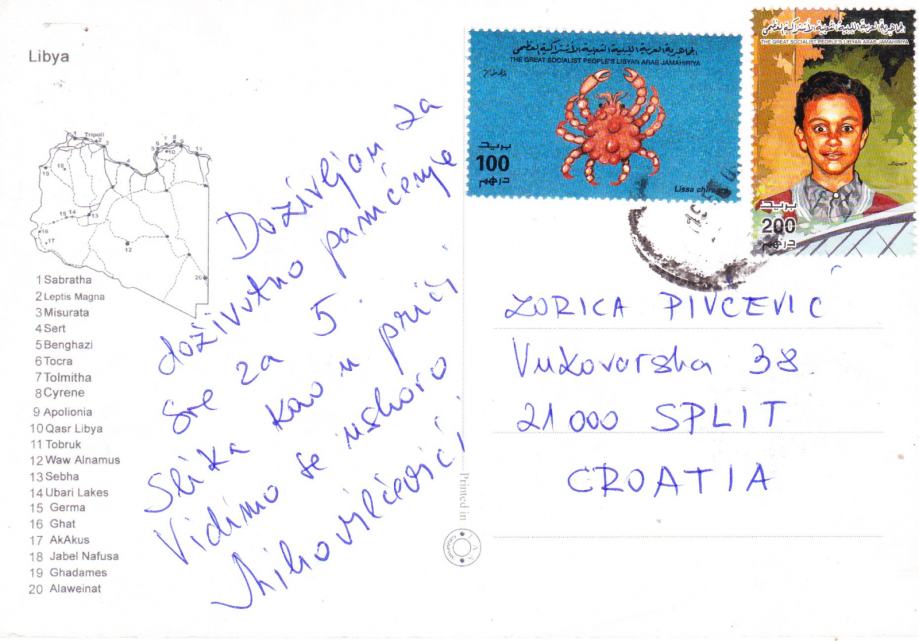 Libya
Tripoli
1 Sabratha
2 Leptis Magna
3 Misurata
4 Sert
5 Benghazi
6 Tocra
7 Tolmitha
8 Cyrene
9 Apolionia
10 Qasr Libya
11 Tobruk
12 Waw Alnamus
13 Sebha
14 Ubari Lakes
15 Germa
16 Ghat
17 AkAkus
18 Jabel Nafusa
19 Ghadames
20 Alaweinat
Doživljaj za
doživotno pamćenje
Sve za 5.
Slika kao u priči
Vidimo se uskoro
Mihovilčevići
Printed in
الجماهيرية العربية الليبية الشعبية الاشتراكية العظمى
THE GREAT SOCIALIST PEOPLE'S LIBYAN ARAB JAMAHIRIYA
بريد
100
درهم
Lissa
الجماهيرية العربية الليبية الشعبية الاشتراكية العظمى
THE GREAT SOCIALIST PEOPLE'S LIBYAN ARAB JAMAHIRIYA
بريد
200
درهم
ZORICA PIVCEVIC
Vukovarska 38.
21000 SPLIT
CROATIA